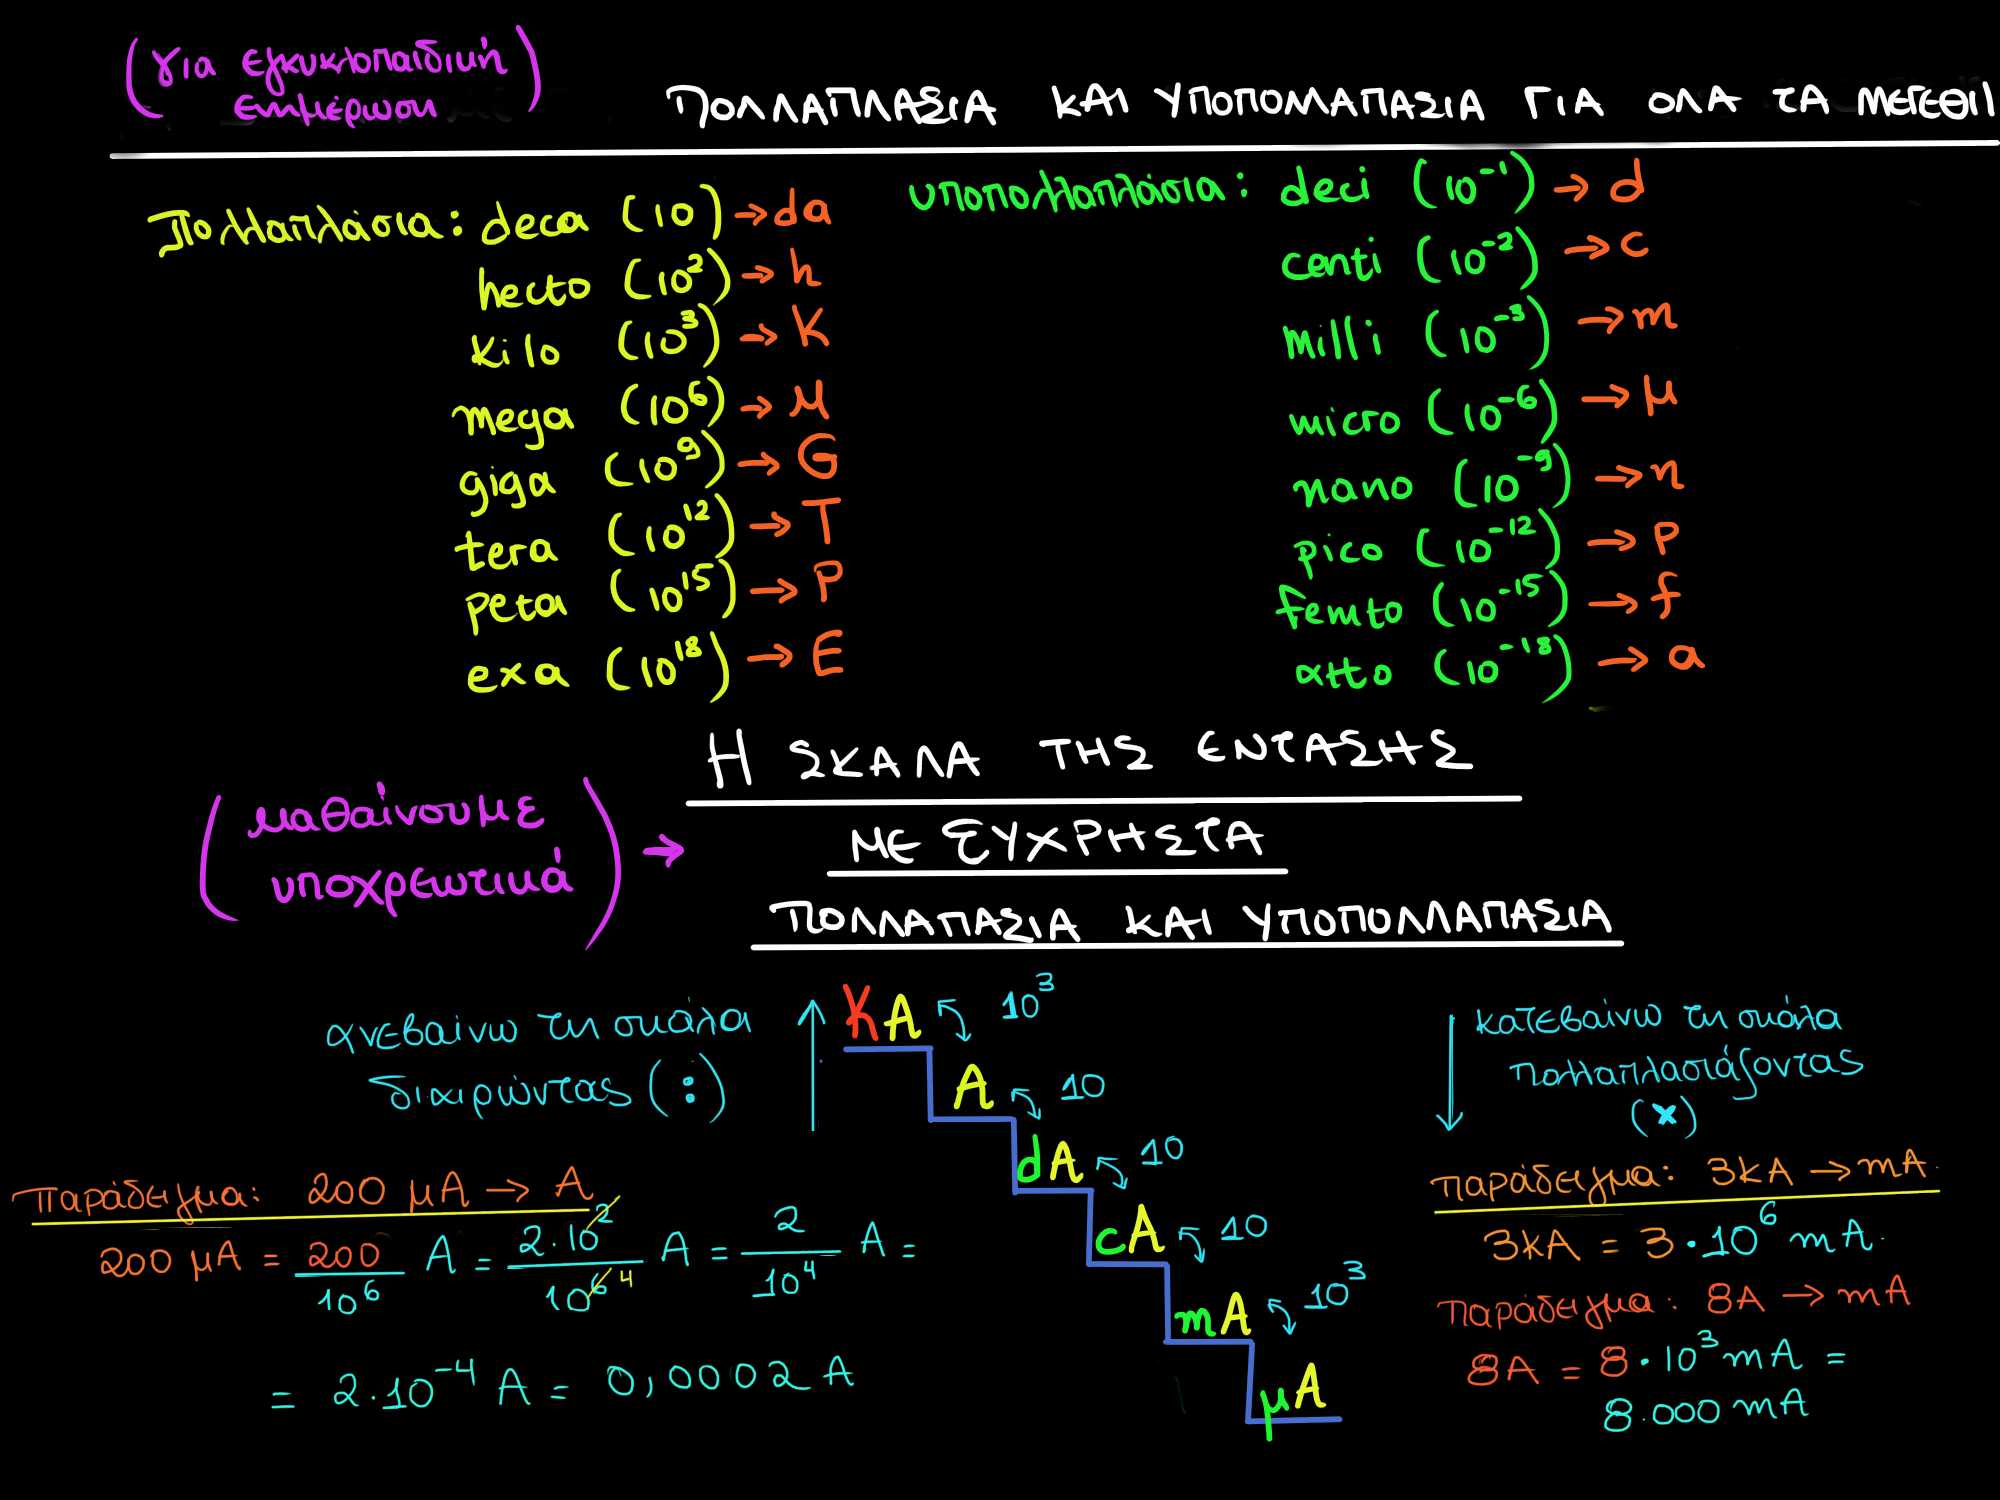 (για εγκυκλοπαιδική
ενημέρωση)
ΠΟΛΛΑΠΛΑΣΙΑ ΚΑΙ ΥΠΟΠΟΛΛΑΠΑΣΙΑ ΓΙΑ ΟΛΑ ΤΑ ΜΕΓΕΘΗ
Πολλαπλάσια: deca (10) → da
hecto (10²) → h
kilo (10³) → K
mega (10⁶) → M
giga (10⁹) → G
tera (10¹²) → T
peta (10¹⁵) → P
exa (10¹⁸) → E
υποπολλαπλάσια: deci (10⁻¹) → d
centi (10⁻²) → c
milli (10⁻³) → m
micro (10⁻⁶) → μ
nano (10⁻⁹) → n
pico (10⁻¹²) → p
femto (10⁻¹⁵) → f
atto (10⁻¹⁸) → a
Η ΣΚΑΛΑ ΤΗΣ ΕΝΤΑΣΗΣ
(μαθαίνουμε
υποχρεωτικά) →
ΜΕ ΕΥΧΡΗΣΤΑ
ΠΟΛΛΑΠΑΣΙΑ ΚΑΙ ΥΠΟΠΟΛΛΑΠΑΣΙΑ
ανεβαίνω τη σκάλα
διαιρώντας (:)
KA 10³
A 10
dA 10
cA 10
mA 10³
μA
κατεβαίνω τη σκάλα
πολλαπλασιάζοντας
(x)
παράδειγμα: 200 μA → A
200 μA = 200/10⁶ A = 2·10²/10⁶ ⁴ A = 2/10⁴ A =
= 2·10⁻⁴ A = 0,0002 A
παράδειγμα: 3kA → mA.
3kA = 3·10⁶ mA.
παράδειγμα: 8A → mA
8A = 8·10³ mA =
8.000 mA